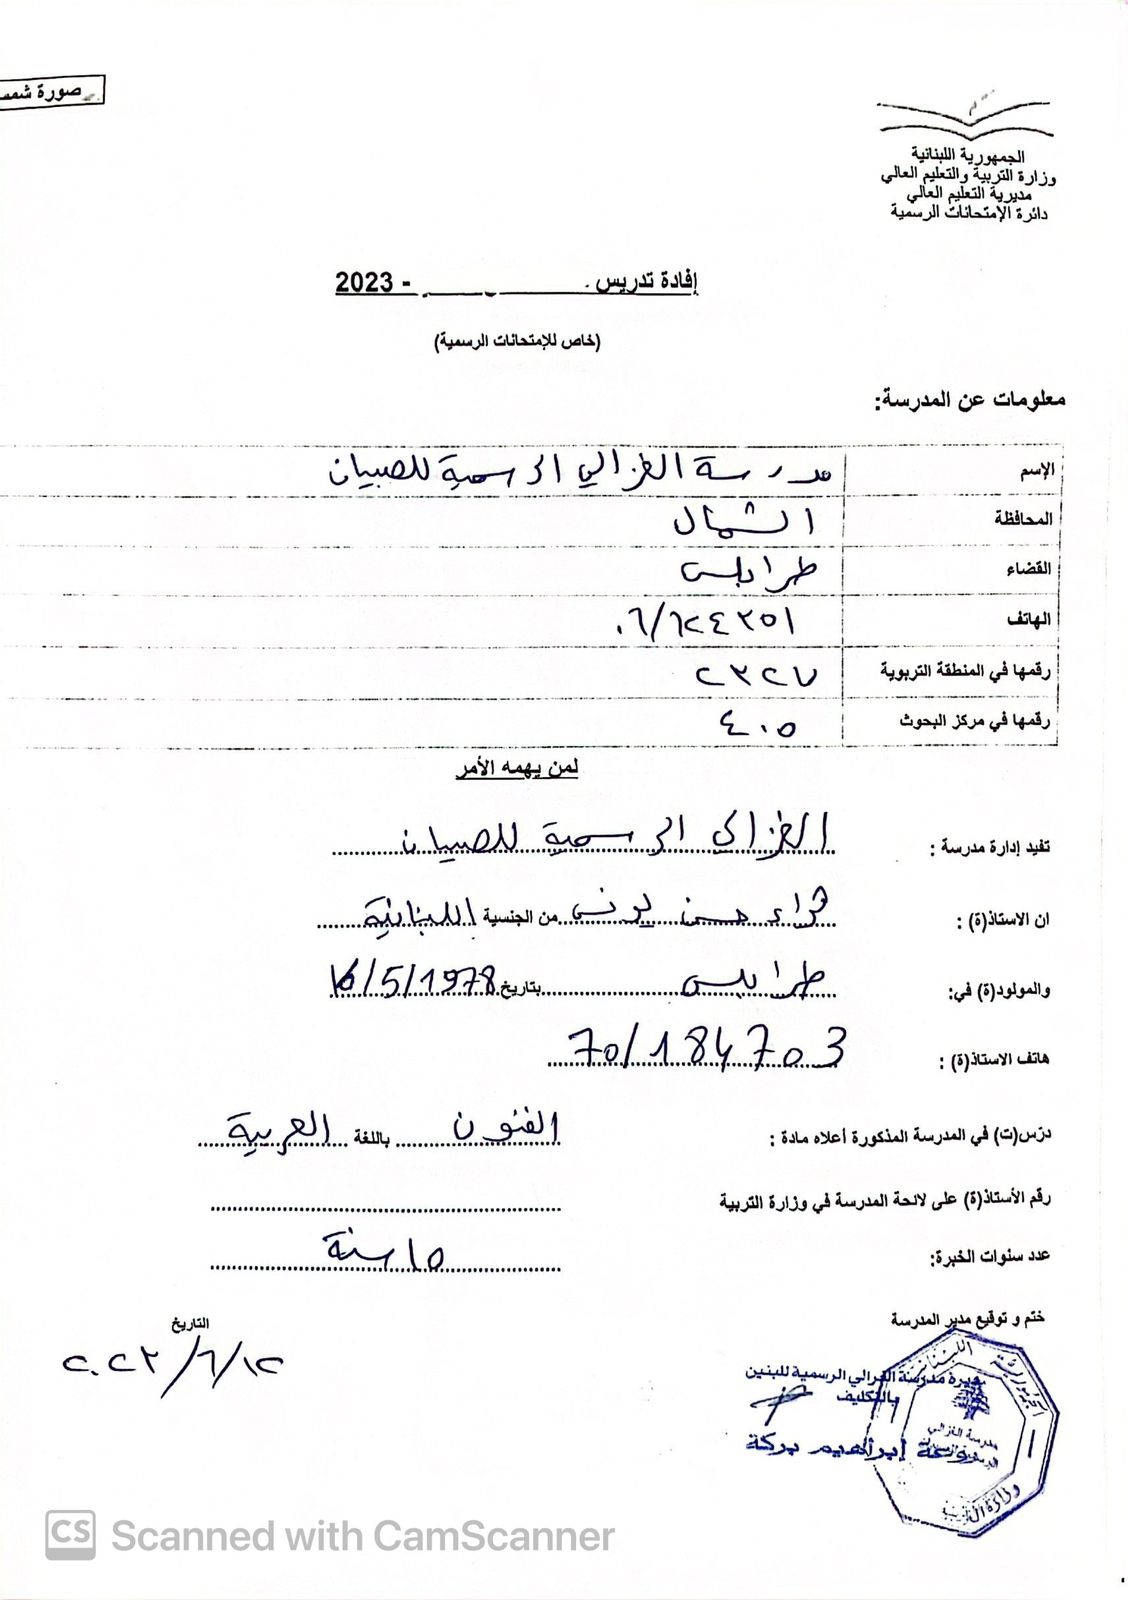 صورة شمس
الجمهورية اللبنانية
وزارة التربية والتعليم العالي
مديرية التعليم العالي
دائرة الإمتحانات الرسمية
إفادة تدريس - 2023
(خاص للإمتحانات الرسمية)
معلومات عن المدرسة:
الإسم مدرسة الغزالي الرسمية للصبيان
المحافظة الشمال
القضاء طرابلس
الهاتف ٠٦/٦٢٤٣٥١
رقمها في المنطقة التربوية ٢٣٢٧
رقمها في مركز البحوث ٤٠٥
لمن يهمه الأمر
تفيد إدارة مدرسة : الغزالي الرسمية للصبيان
ان الاستاذ(ة) : حسن يونس من الجنسية اللبنانية
والمولود(ة) في: طرابلس بتاريخ 16/5/1978
هاتف الاستاذ(ة) : 70/184703
درّس(ت) في المدرسة المذكورة أعلاه مادة : الفنون باللغة العربية
رقم الأستاذ(ة) على لائحة المدرسة في وزارة التربية
عدد سنوات الخبرة: ١٥ سنة
ختم و توقيع مدير المدرسة
التاريخ
١٢/٦/٢٠٢٣
مديرة مدرسة الغزالي الرسمية للبنين
بالتكليف
إبراهيم بركة
الجمهورية اللبنانية
مدرسة الغزالي
وزارة التربية
CS Scanned with CamScanner